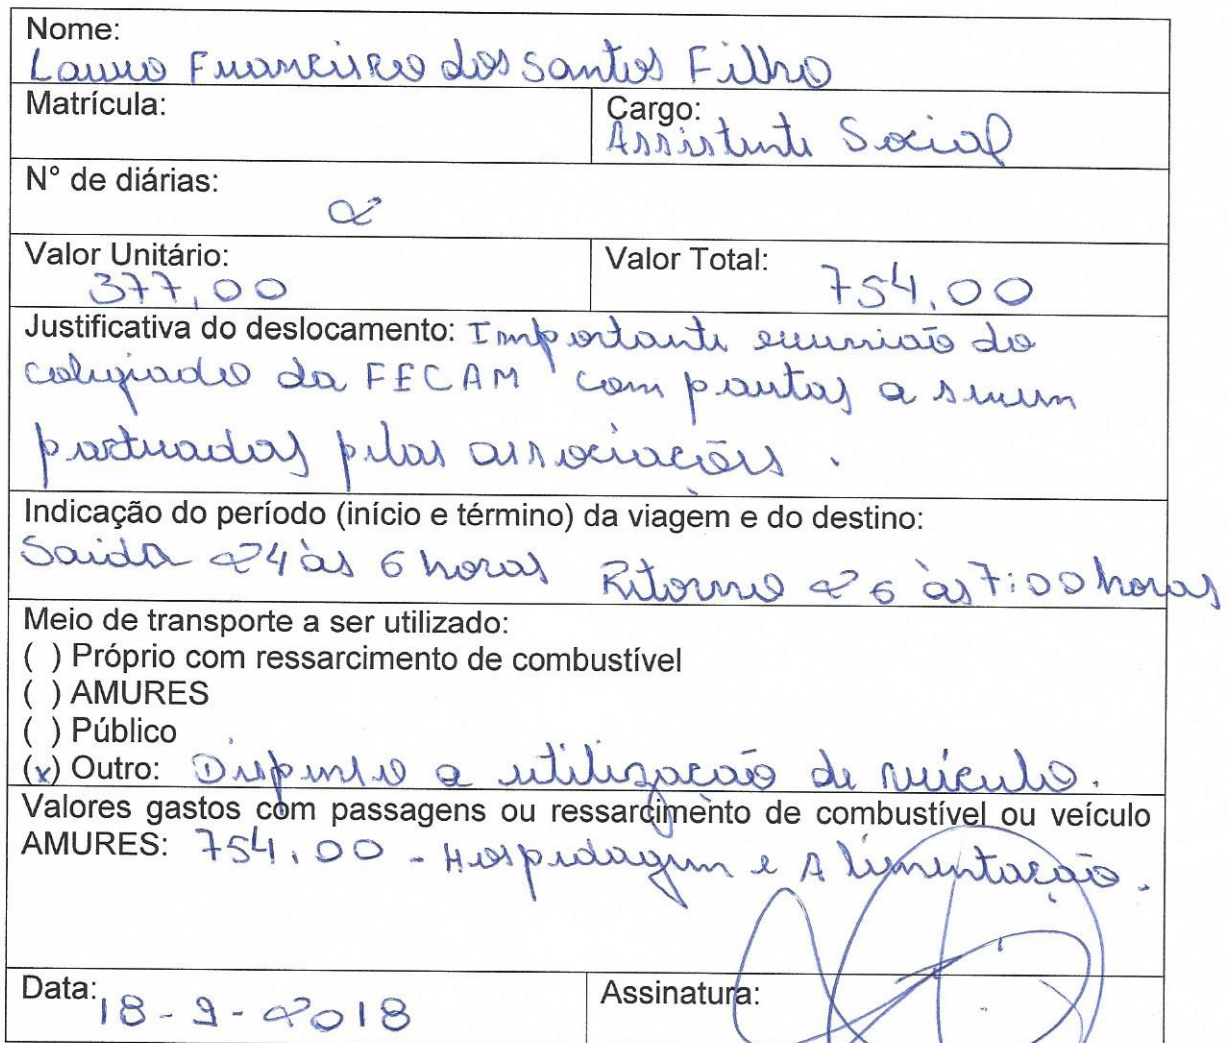 Nome:
Lauro Francisco dos Santos Filho
Matrícula:
Cargo:
Assistente Social
N° de diárias:
2
Valor Unitário:
377,00
Valor Total:
754,00
Justificativa do deslocamento: Importante reunião do
colegiado da FECAM com pautas a serem
pactuadas pelas associações.
Indicação do período (início e término) da viagem e do destino:
Saida 24 às 6 horas Retorno 26 às 7:00 horas
Meio de transporte a ser utilizado:
( ) Próprio com ressarcimento de combustível
( ) AMURES
( ) Público
(x) Outro: Dispenso a utilização de veículo.
Valores gastos com passagens ou ressarcimento de combustível ou veículo
AMURES: 754,00 - Hospedagem e Alimentação.
Data: 18-9-2018
Assinatura: